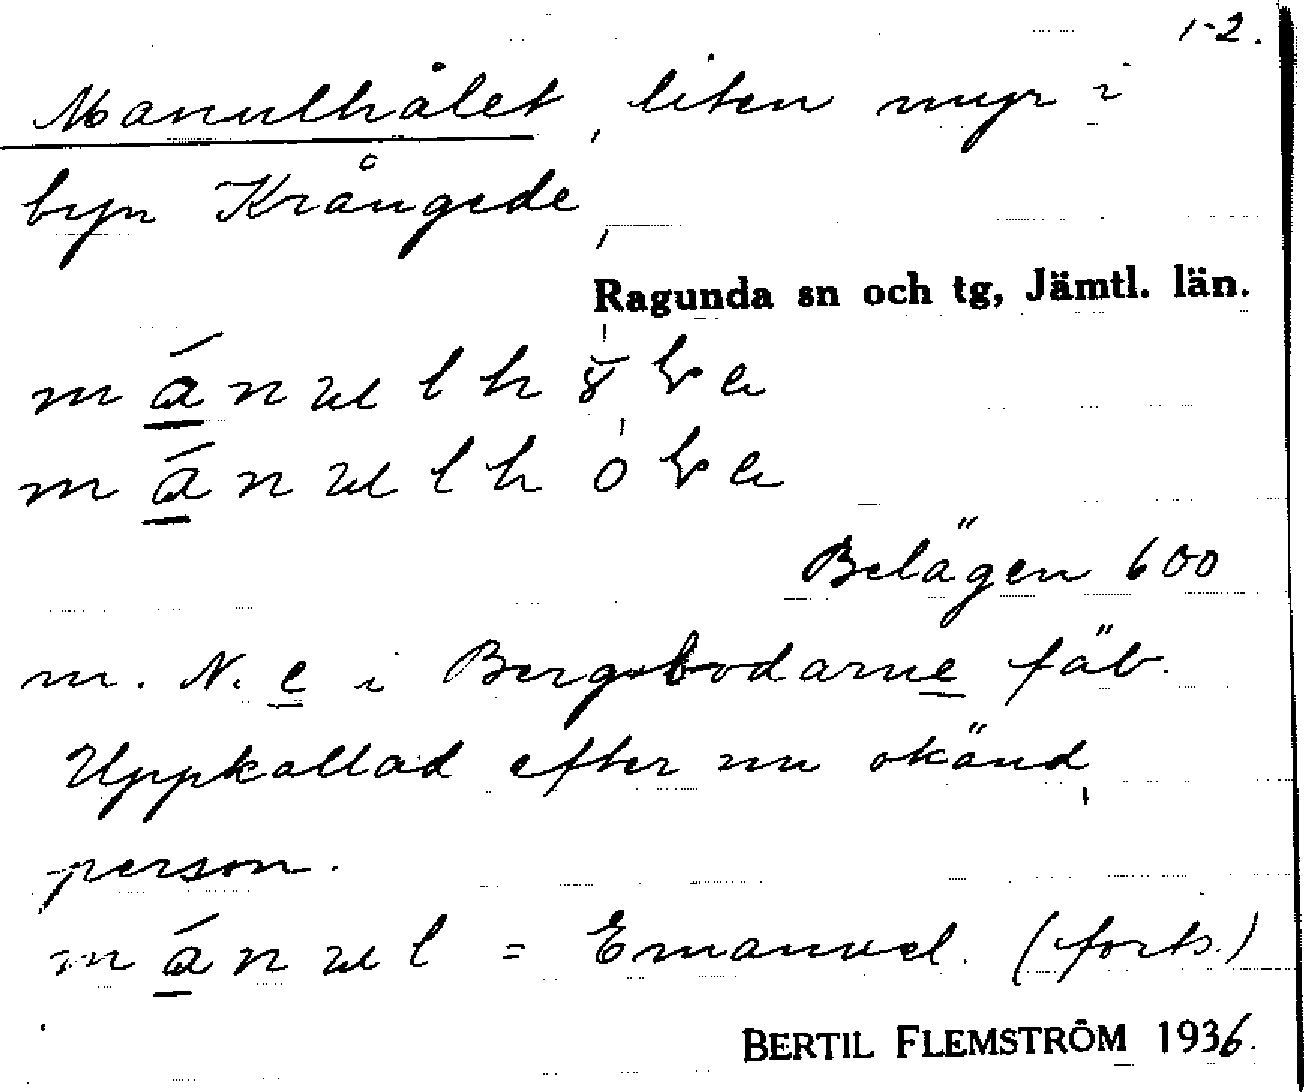 1-2.
Manulhålet, liten myr i
byn Krångede,
Ragunda sn och tg, Jämtl. län.
Belägen 600
m. N. e i Bergsbodarne fäb.
Uppkallad efter nu okänd,
person.
mánul = Emanuel. (forts.)
BERTIL FLEMSTRÖM 1936.